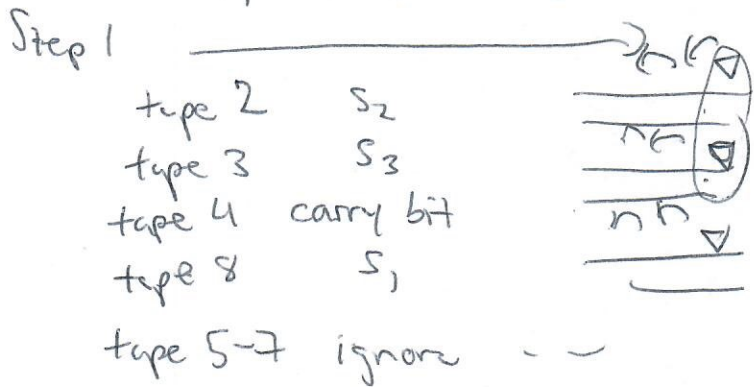 Step 1
tape 2 S₂
tape 3 S₃
tape 4 carry bit
tape 8 S₁
tape 5-7 ignore - -